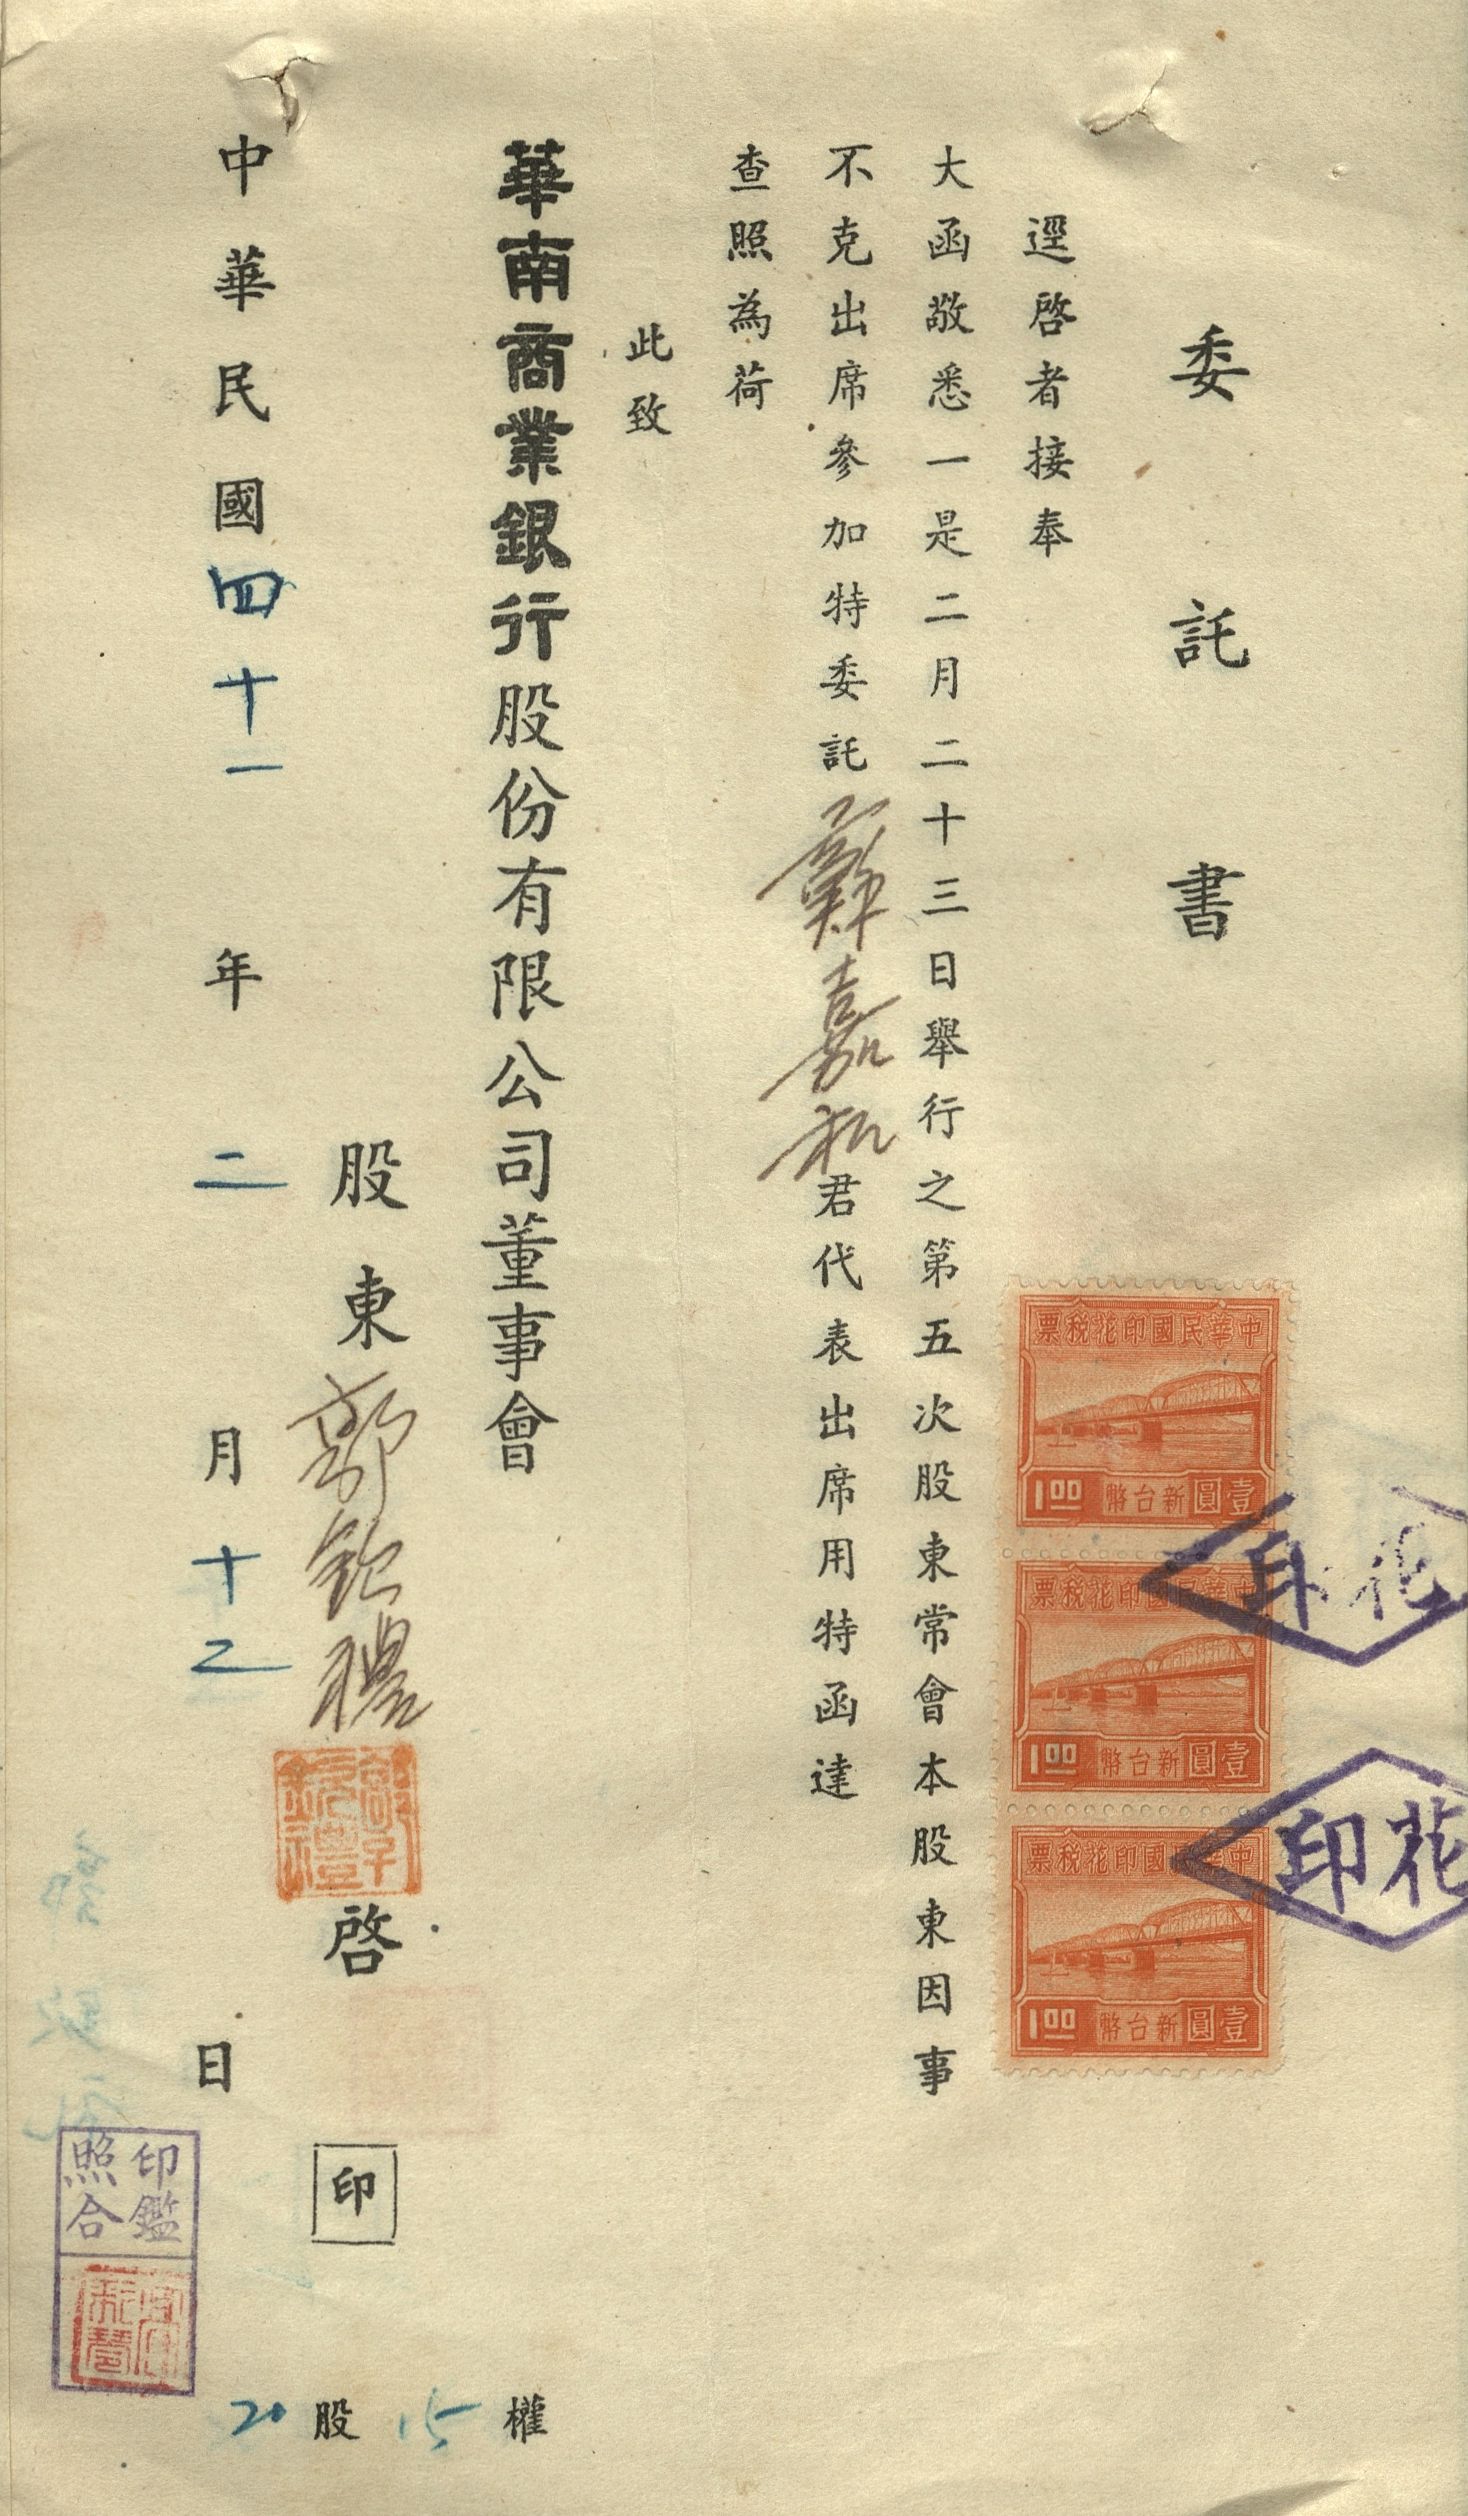 委託書
逕啓者接奉
大函敬悉一是二月二十三日舉行之第五次股東常會本股東因事
不克出席參加特委託蘇嘉和君代表出席用特函達
查照為荷
此致
華南商業銀行股份有限公司董事會
股東郭欽禮啓
印
中華民國四十一年二月十二日
20股15權
中華民國印花稅票
1.00
新台幣壹圓
中華民國印花稅票
1.00
新台幣壹圓
中華民國印花稅票
1.00
新台幣壹圓
花印
花印
印鑑
照合